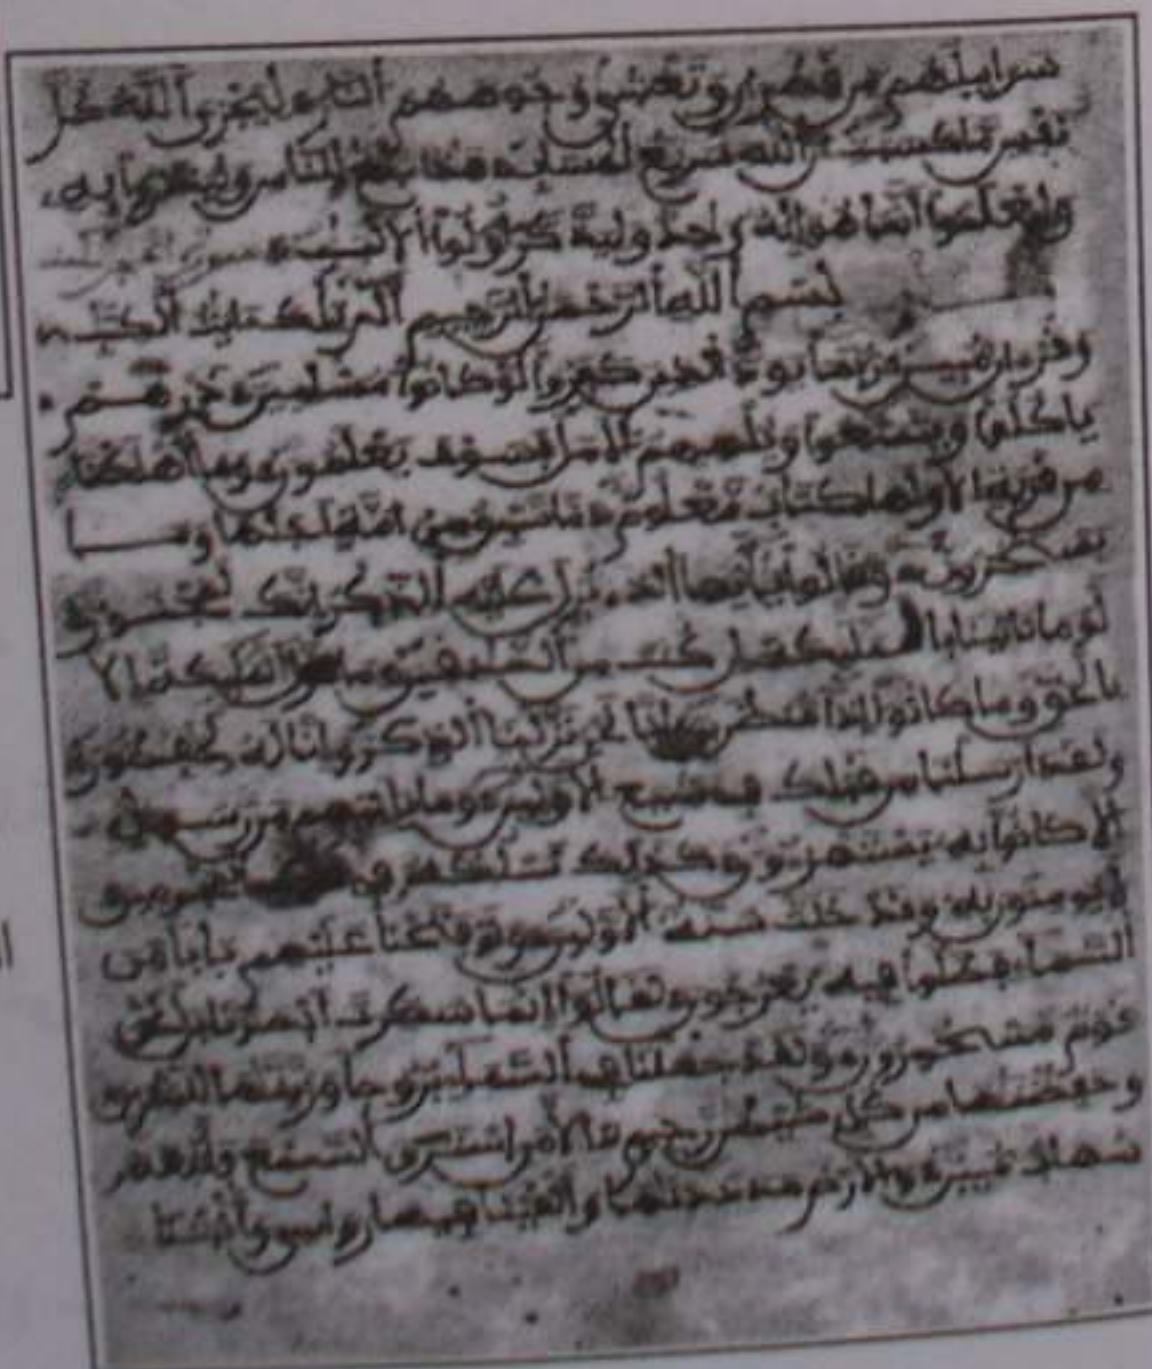 سرابيلهم من قطران وتغشى وجوههم النار ليجزي الله كل
نفس ما كسبت ان الله سريع الحساب هذا بلغ للناس ولينذروا به
وليعلموا انما هو اله وحد وليذكر اولوا الالبب
بسم الله الرحمن الرحيم الر تلك ءايت الكتب
وقرءان مبين ربما يود الذين كفروا لو كانوا مسلمين ذرهم
ياكلوا ويتمتعوا ويلههم الامل فسوف يعلمون وما اهلكنا
من قرية الا ولها كتاب معلوم ما تسبق من امة اجلها وما
يستخرون وقالوا يايها الذي نزل عليه الذكر انك لمجنون
لو ما تاتينا بالمليكة ان كنت من الصدقين ما تنزل المليكة الا
بالحق وما كانوا اذا منظرين انا نحن نزلنا الذكر وانا له لحفظون
ولقد ارسلنا من قبلك في شيع الاولين وما ياتيهم من رسول
الا كانوا به يستهزءون كذلك نسلكه في قلوب المجرمين
لا يومنون به وقد خلت سنة الاولين ولو فتحنا عليهم بابا من
السماء فظلوا فيه يعرجون لقالوا انما سكرت ابصرنا بل نحن
قوم مسحورون ولقد جعلنا في السماء بروجا وزينها للنظرين
وحفظنها من كل شيطن رجيم الا من استرق السمع فاتبعه
شهاب مبين والارض مددنها والقينا فيها روسي وانبتنا